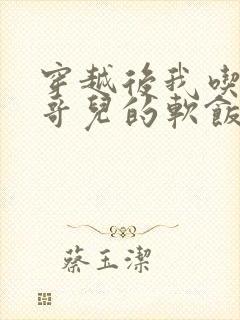 穿越後我喫
哥兒的軟飯
蔡玉潔